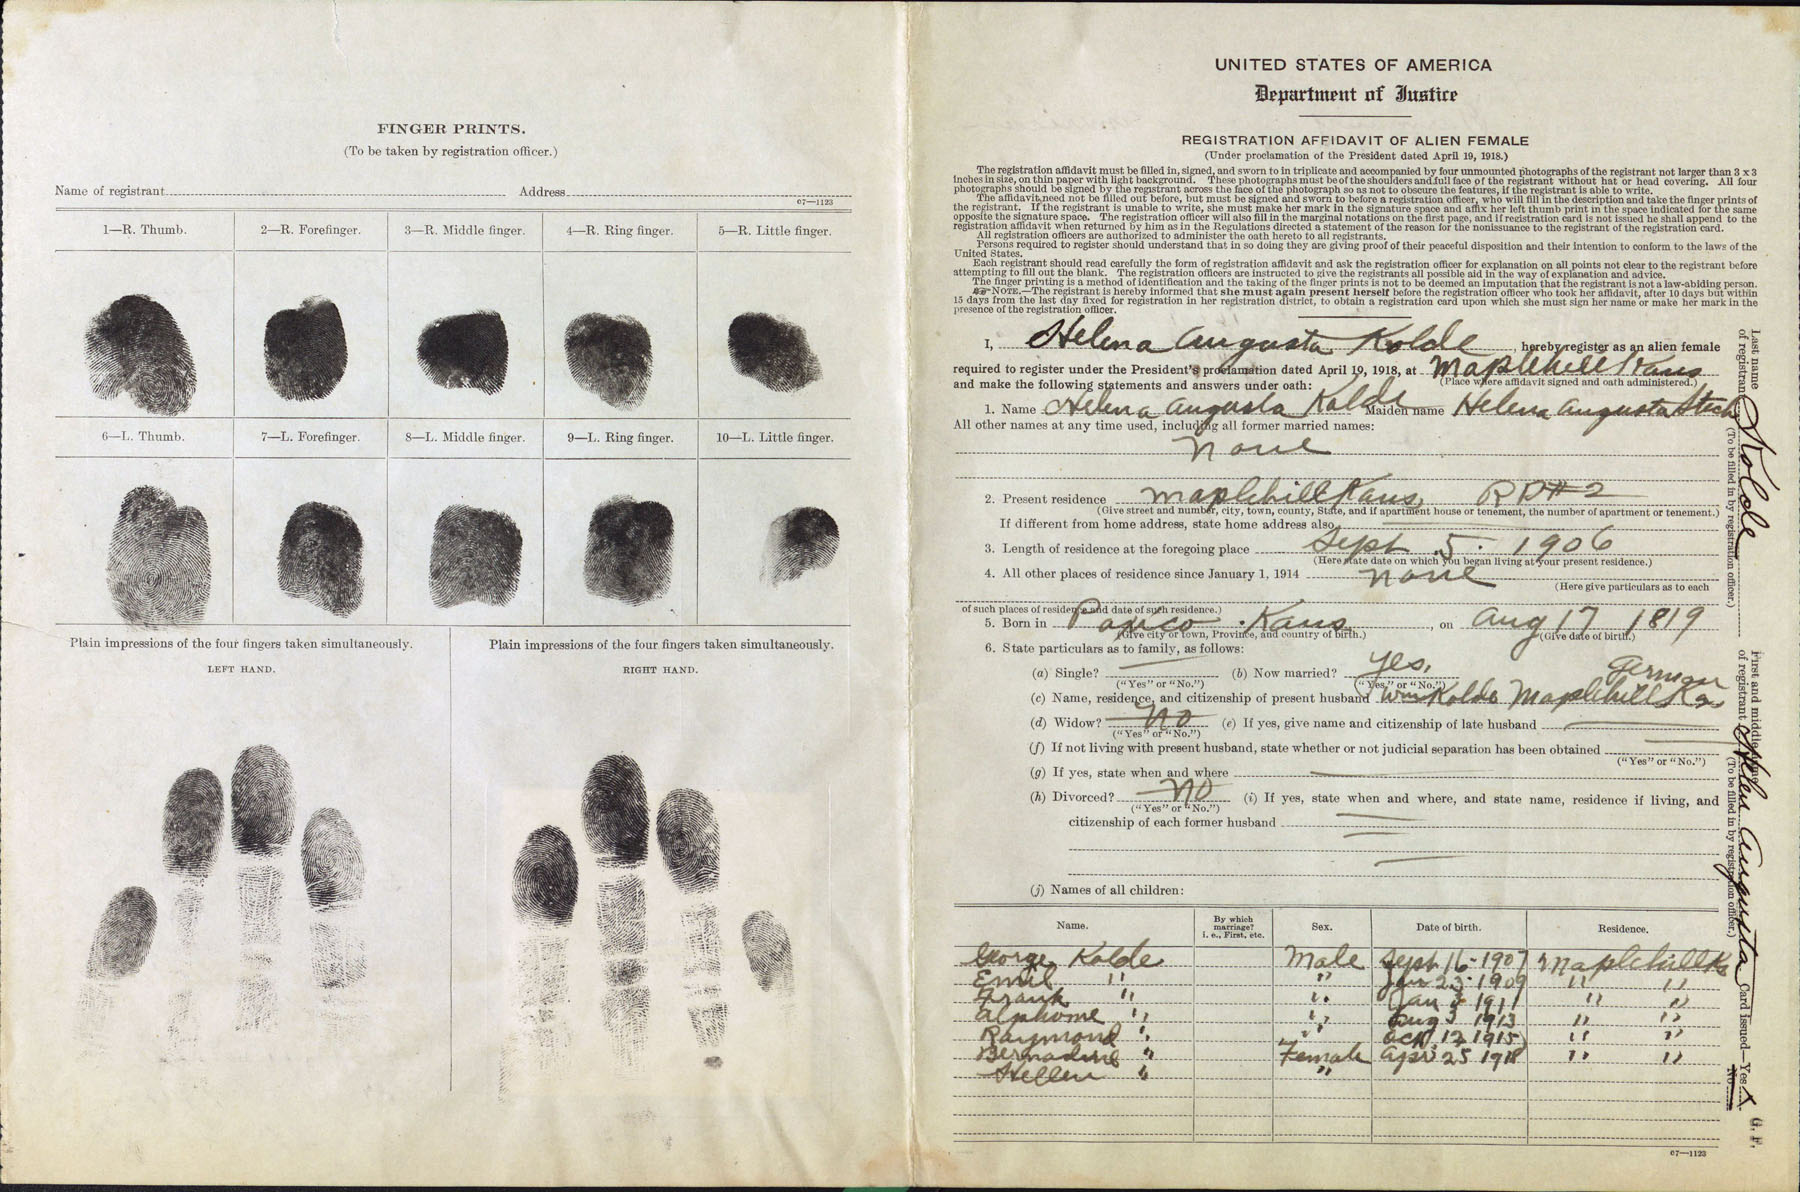 FINGER PRINTS.
(To be taken by registration officer.)
Name of registrant Address
67—1123
1—R. Thumb. 2—R. Forefinger. 3—R. Middle finger. 4—R. Ring finger. 5—R. Little finger.
6—L. Thumb. 7—L. Forefinger. 8—L. Middle finger. 9—L. Ring finger. 10—L. Little finger.
Plain impressions of the four fingers taken simultaneously. Plain impressions of the four fingers taken simultaneously.
LEFT HAND. RIGHT HAND.
UNITED STATES OF AMERICA
Department of Justice
REGISTRATION AFFIDAVIT OF ALIEN FEMALE
(Under proclamation of the President dated April 19, 1918.)
The registration affidavit must be filled in, signed, and sworn to in triplicate and accompanied by four unmounted photographs of the registrant not larger than 3 x 3
inches in size, on thin paper with light background. These photographs must be of the shoulders and full face of the registrant without hat or head covering. All four
photographs should be signed by the registrant across the face of the photograph so as not to obscure the features, if the registrant is able to write.
The affidavit need not be filled out before, but must be signed and sworn to before a registration officer, who will fill in the description and take the finger prints of
the registrant. If the registrant is unable to write, she must make her mark in the signature space and affix her left thumb print in the space indicated for the same
opposite the signature space. The registration officer will also fill in the marginal notations on the first page, and if registration card is not issued he shall append to the
registration affidavit when returned by him as in the Regulations directed a statement of the reason for the nonissuance to the registrant of the registration card.
All registration officers are authorized to administer the oath hereto to all registrants.
Persons required to register should understand that in so doing they are giving proof of their peaceful disposition and their intention to conform to the laws of the
United States.
Each registrant should read carefully the form of registration affidavit and ask the registration officer for explanation on all points not clear to the registrant before
attempting to fill out the blank. The registration officers are instructed to give the registrants all possible aid in the way of explanation and advice.
The finger printing is a method of identification and the taking of the finger prints is not to be deemed an imputation that the registrant is not a law-abiding person.
NOTE.—The registrant is hereby informed that she must again present herself before the registration officer who took her affidavit, after 10 days but within
15 days from the last day fixed for registration in her registration district, to obtain a registration card upon which she must sign her name or make her mark in the
presence of the registration officer.
I, Helena Augusta Kolde, hereby register as an alien female
required to register under the President's proclamation dated April 19, 1918, at Maplehill Kans
(Place where affidavit signed and oath administered.)
and make the following statements and answers under oath:
1. Name Helena Augusta Kolde Maiden name Helena Augusta Stech
All other names at any time used, including all former married names:
none
2. Present residence Maplehill Kans, RD#2
(Give street and number, city, town, county, State, and if apartment house or tenement, the number of apartment or tenement.)
If different from home address, state home address also
3. Length of residence at the foregoing place Sept. 5. 1906
(Here state date on which you began living at your present residence.)
4. All other places of residence since January 1, 1914 none
(Here give particulars as to each
of such places of residence and date of such residence.)
5. Born in Paxico. Kans, on Aug 17 1819
(Give city or town, Province, and country of birth.) (Give date of birth.)
6. State particulars as to family, as follows:
(a) Single? (b) Now married? Yes.
("Yes" or "No.") ("Yes" or "No.")
German
(c) Name, residence, and citizenship of present husband Wm Kolde Maplehill Ks,
(d) Widow? No (e) If yes, give name and citizenship of late husband
("Yes" or "No.")
(f) If not living with present husband, state whether or not judicial separation has been obtained
("Yes" or "No.")
(g) If yes, state when and where
(h) Divorced? No (i) If yes, state when and where, and state name, residence if living, and
("Yes" or "No.")
citizenship of each former husband
(j) Names of all children:
Name. By which marriage? I. e., First, etc. Sex. Date of birth. Residence.
George Kolde Male Sept 16-1907 Maplehill Ks
Emil " " Jan 23-1909 " "
Frank " " Jan 3 1911 " "
Alphome " " Aug 3 1913 " "
Raymond " " Oct. 12 1915 " "
Bernadine " Female Apr. 25 1918 " "
Hellen " "
67—1123
Last name of registrant Kolde
(To be filled in by registration officer.)
First and middle name of registrant Helen Augusta
(To be filled in by registration officer.)
Card issued—Yes X
No
G. F.